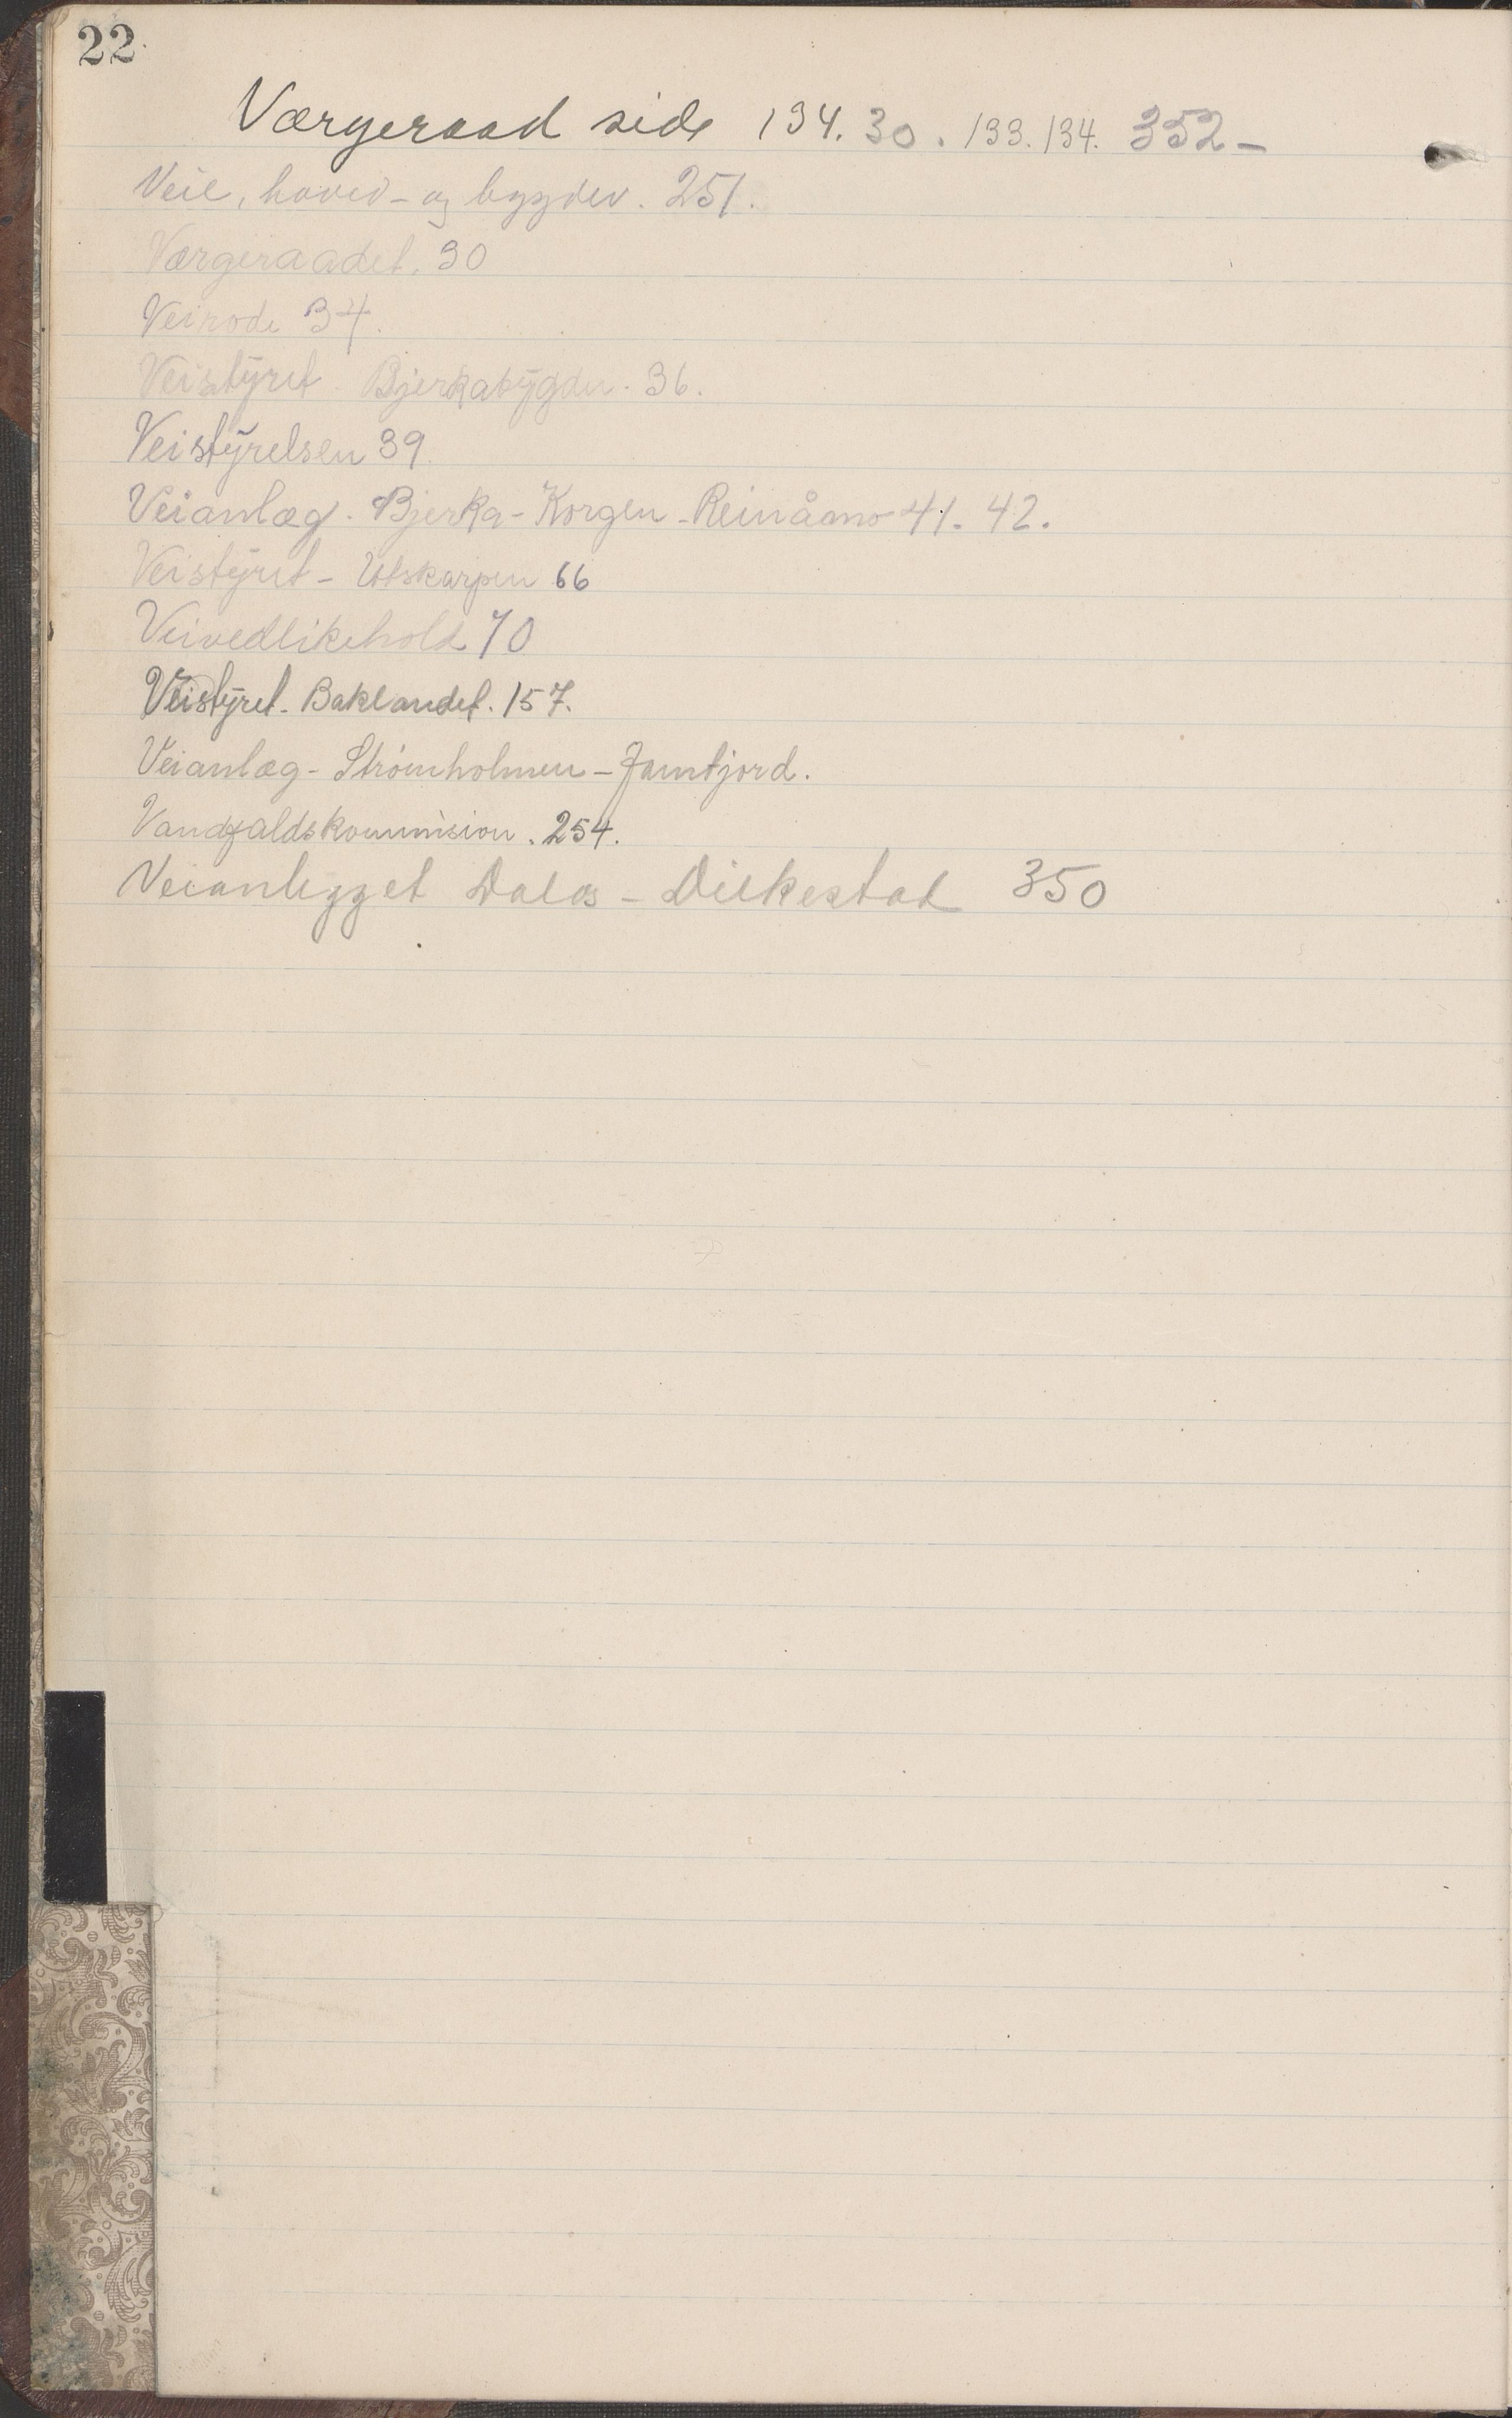 22
Værgeraad side 134. 30. 133. 134. 352 -
Veie, hoved- og bygdev. 251.
Værgeraadet. 30
Veirode 34.
Veistyret Bjerkabygden. 36.
Veistyrelsen 39.
Veianlæg. Bjerka - Korgen - Reinåmo 41. 42.
Veistyret - Utskarpen 66
Veivedlikehold 70
Veistyret - Baklandet. 157.
Veianlæg - Strømholmen - Jamtjord.
Vandfaldskommision. 254.
Veianlegget Dalos - Dilkestad 350